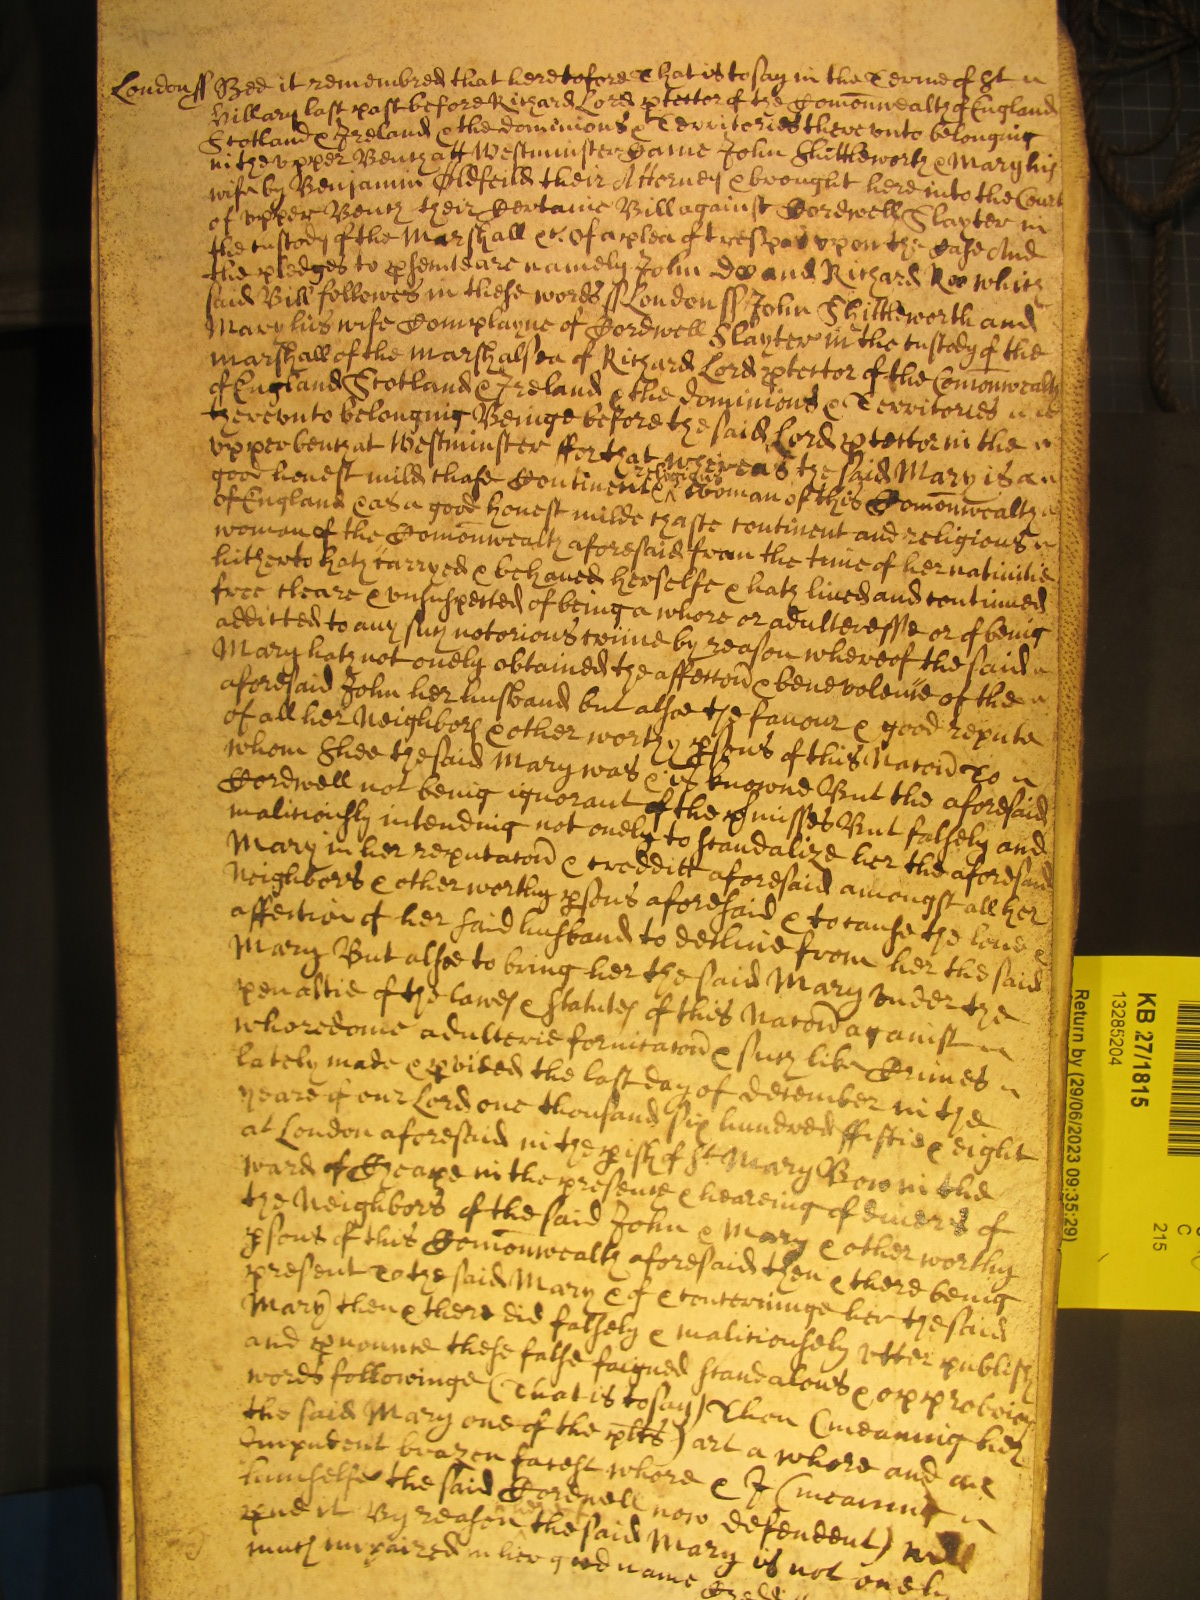 London ss Bee it remembred that heretofore That is to say in the Terme of St
Hillary last past before Richard Lord ptector of the Comonwealth of England
Scotland & Ireland & the dominions & Territories therevnto belonging
in the vpper Bench att Westminster Came John Shittleworth & Mary his
wife by Benjamin Oldfeild their Attorney & brought here into the Court
of vpper Bench their Certaine Bill against Cordwell Slayter in
the custody of the Marshall &c of a plea of trespas vpon the Case And
the pledges to psecute are namely John Doo and Richard Roo which
said Bill followes in these words ss London ss John Shittleworth and
Mary his wife Complayne of Cordwell Slayter in the custody of the
Marshall of the Marshalsea of Richard Lord ptector of the Comonwealth
of England Scotland & Ireland & the dominions & Territories
therevnto belonging Beinge before the said Lord ptector in the
vpper bench at Westminster ffor that whereas the said Mary is a
good honest mild chase Continent & religious woman of this Comonwealth
of England & as a good honest milde chaste continent and religious
woman of the Comonwealth aforesaid from the time of her nativitie
hitherto hath carryed & behaued herselfe & hath liued and continued
free cleare & vnsuspected of being a whore or adulteresse or of being
addicted to any such notorious crime by reason whereof the said
Mary hath not onely obtained the affeccon & benevolence of the
aforesaid John her husband but alsoe the favour & good repute
of all her Neighbors & other worthy psons of this Nacon To
whom Shee the said Mary was & is knowne But the aforesaid
Cordwell not being ignorant of the pmisses But falsely and
malitiously intending not onely to scandalize her the aforesaid
Mary in her reputacon & creditt aforesaid amongst all her
Neighbors & other worthy psons aforesaid & to cause the loue &
affection of her said husband to decline from her the said
Mary But alsoe to bring her the said Mary vnder the
penaltie of the lawes & statutes of this Nacon against
whoredome adulterie fornicacon & such like Crimes
lately made & pvided the last day of december in the
yeare of our Lord one thousand six hundred ffiftie & eight
at London aforesaid in the pish of St Mary Bow in the
ward of Cheape in the presence & heareing of divers of
the Neighbors of the said John & Mary & other worthy
psons of this Comonwealth aforesaid then & there being
present & to the said Mary & of & concerninge her the said
Mary then & there did falsely & malitiousely vtter publish
and pnounce these false faigned scandalous & opprobrious
words followinge (That is to say) Thou (meaning her
the said Mary one of the plts) art a whore and an
Impudent brazen facest whore & I (meaning
himselfe the said Cordwell now defendent) will
pue it By reason whereof the said Mary is not onely
much impaired in her good name
KB 27/1815
13285204
Return by (29/06/2023 09:35:29)
C
215